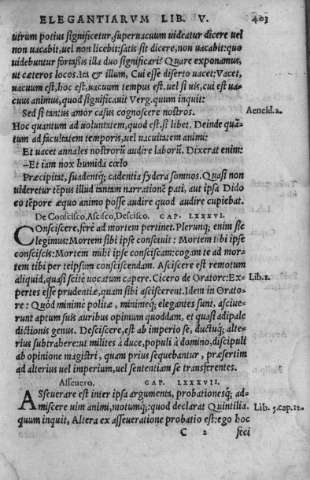 ELEGANTIARVM LIB. V. 403
utrum potius significetur, superuacuum uideatur dicere uel
non uacabit, uel non licebit: satis sit dicere, non uacabit: quo
uidebuntur forsitis illa duo significari? Quare exponamus,
ut cæteros locos, ita & illum, Cui esse diserto uacet: Vacet,
uacuum est, hoc est, uacuum tempus est, uel si uis, cui est ua=
cuus animus, quod significauit Verg. quum inquit:
Sed si tantus amor casus cognoscere nostros. Aeneid. 2.
Hoc quantum ad uoluntatem, quod est, si libet. Deinde quã=
tum ad facultatem temporis, uel uacuitatem animi:
Et uacet annales nostrorũ audire laborũ. Dixerat enim:
–Et iam nox humida cœlo
Præcipitat, suadentq́; cadentia sydera somnos. Quasi non
uideretur tẽpus illud tantam narrationẽ pati, aut ipsa Dido
eo tẽpore æquo animo posse audire quod audire cupiebat.
De Conscisco, Ascisco, Descisco. CAP. LXXXVI.
COnsciscere, ferè ad mortem pertinet. Plerunq́; enim sic
legimus: Mortem sibi ipse consciuit: Mortem tibi ipse
consciscis: Mortem mihi ipse consciscam: cogam te ad mor=
tem tibi per teipsum consciscendam. Asciscere est remotum
aliquid, quasi scitè uocatum capere. Cicero de Oratore: Ex= Lib. 1.
pertes esse prudentiæ, quam sibi asciscerent. Idem in Orato=
re: Quòd minimè politæ, minimeq́; elegantes sunt, asciue=
runt aptum suis auribus opimum quoddam, et quasi adipale
dictionis genus. Desciscere, est ab imperio se, ductuq́; alte=
rius subtrahere: ut milites à duce, populi à domino, discipuli
ab opinione magistri, quam prius sequebantur, præsertim
ad alterius uel imperium, uel sententiam se transferentes.
Asseuero. CAP. LXXXVII.
ASseuerare est inter ipsa argumenta, probationesq́; ad=
miscere uim animi, motumq́;: quod declarat Quintilia. Lib. 5. cap. 12.
quum inquit, Altera ex asseueratione probatio est: ego hoc
C 2 feci